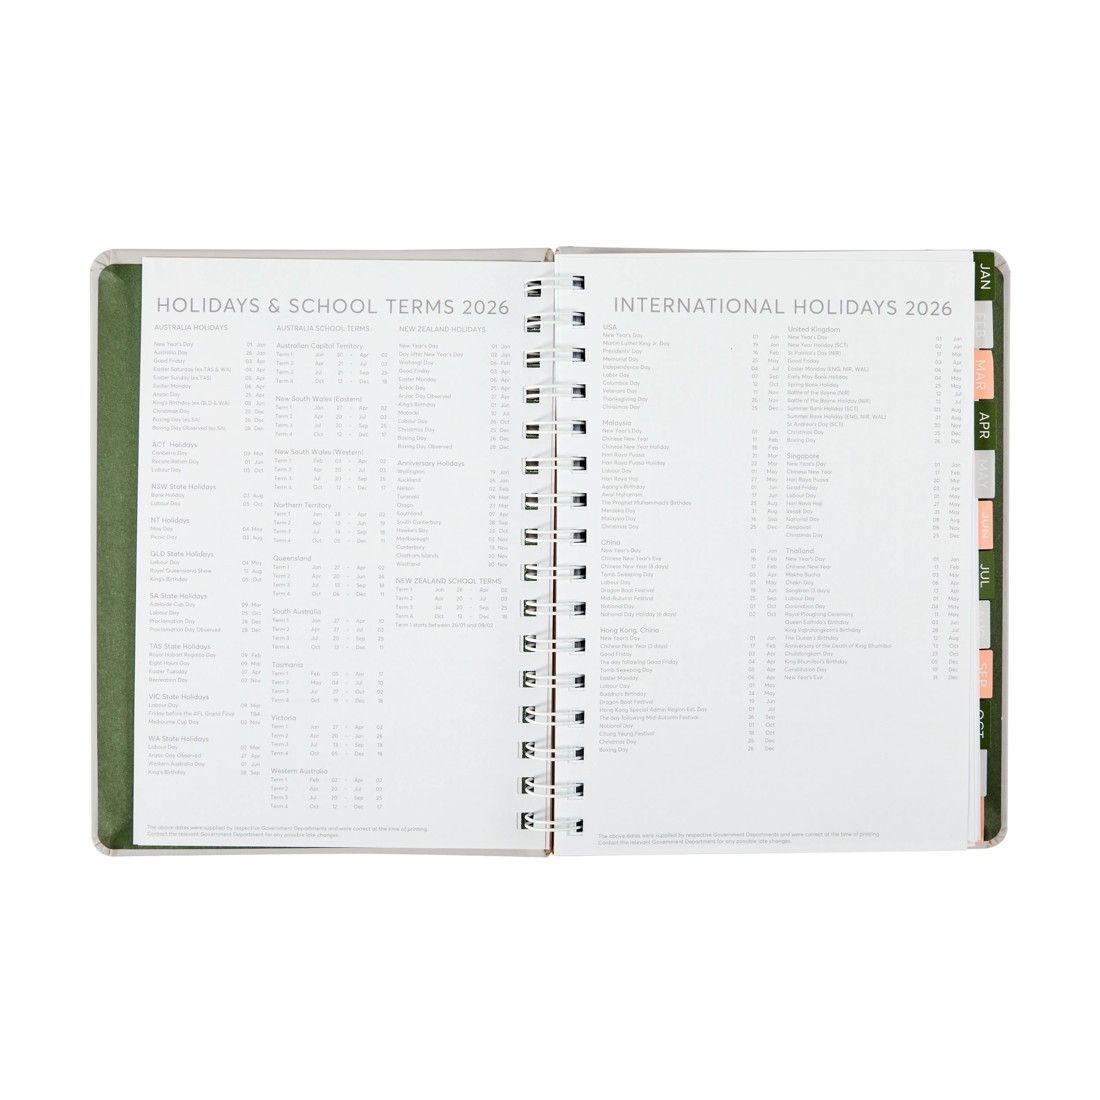 HOLIDAYS & SCHOOL TERMS 2026
AUSTRALIA HOLIDAYS
New Year's Day 01 Jan
Australia Day 26 Jan
Good Friday 03 Apr
Easter Saturday (ex TAS & WA) 04 Apr
Easter Sunday (ex TAS) 05 Apr
Easter Monday 06 Apr
Anzac Day 25 Apr
King's Birthday (ex QLD & WA) 08 Jun
Christmas Day 25 Dec
Boxing Day (ex SA)
Boxing Day (ex SA)
ACT Holidays
Canberra Day 09 Mar
Reconciliation Day 01 Jun
Labour Day 05 Oct
NSW State Holidays
Bank Holiday 03 Aug
Labour Day 05 Oct
NT Holidays
May Day 04 May
Picnic Day 03 Aug
QLD State Holidays
Labour Day 04 May
Royal Queensland Show 12 Aug
King's Birthday 05 Oct
SA State Holidays
Adelaide Cup Day 09 Mar
Labour Day 05 Oct
Proclamation Day
Proclamation Day Observed 28 Dec
TAS State Holidays
Royal Hobart Regatta Day 09 Feb
Eight Hours Day 09 Mar
Easter Tuesday 07 Apr
Recreation Day 02 Nov
VIC State Holidays
Labour Day 09 Mar
Friday before the AFL Grand Final TBA
Melbourne Cup Day 03 Nov
WA State Holidays
Labour Day 02 Mar
Anzac Day Observed 27 Apr
Western Australia Day 01 Jun
King's Birthday 28 Sep
AUSTRALIA SCHOOL TERMS
Australian Capital Territory
Term 1
Term 2
Term 3
Term 4
New South Wales (Eastern)
Term 1 Jan 27 - Apr 02
Term 2 Apr 20 - Jul 03
Term 3 Jul 20 - Sep 25
Term 4 Oct 12 - Dec 17
New South Wales (Western)
Term 1 Feb 03 - Apr 02
Term 2 Apr 20 - Jul 03
Term 3 Jul 20 - Sep 25
Term 4 Oct 12 - Dec 17
Northern Territory
Term 1
Term 2
Term 3
Term 4
Queensland
Term 1 Jan 27 - Apr 02
Term 2 Apr 20 - Jun 26
Term 3
Term 4
South Australia
Term 1
Term 2
Term 3 Jul 20 - Sep 25
Term 4
Tasmania
Term 1
Term 2
Term 3
Term 4
Victoria
Term 1 Jan 27 - Apr 02
Term 2 Apr 20 - Jun 26
Term 3 Jul 13 - Sep 18
Term 4 Oct 05 - Dec 18
Western Australia
Term 1 Feb 02 - Apr 02
Term 2 Apr 20 - Jul 03
Term 3 Jul 20 - Sep 25
Term 4 Oct 12 - Dec 17
NEW ZEALAND HOLIDAYS
New Year's Day 01 Jan
Day after New Year's Day 02 Jan
Waitangi Day 06 Feb
Good Friday 03 Apr
Easter Monday 06 Apr
Anzac Day 25 Apr
Anzac Day Observed 27 Apr
King's Birthday 01 Jun
Matariki 10 Jul
Labour Day 26 Oct
Christmas Day 25 Dec
Boxing Day 26 Dec
Boxing Day Observed 28 Dec
Anniversary Holidays
Wellington 19 Jan
Auckland 26 Jan
Nelson 02 Feb
Taranaki 09 Mar
Otago 23 Mar
Southland 07 Apr
South Canterbury 28 Sep
Hawke's Bay 23 Oct
Marlborough 02 Nov
Canterbury 13 Nov
Chatham Islands 30 Nov
Westland 30 Nov
NEW ZEALAND SCHOOL TERMS
Term 1 Jan 26 - Apr 02
Term 2 Apr 20 - Jul 03
Term 3 Jul 20 - Sep 25
Term 4 Oct 12 - Dec 18
Term 1 starts between 26/01 and 09/02
The above dates were supplied by respective Government Departments and were correct at the time of printing.
Contact the relevant Government Department for any possible late changes.
INTERNATIONAL HOLIDAYS 2026
USA
New Year's Day 01 Jan
Martin Luther King Jr. Day 19 Jan
Presidents' Day 16 Feb
Memorial Day 25 May
Independence Day 04 Jul
Labor Day 07 Sep
Columbus Day 12 Oct
Veterans Day 11 Nov
Thanksgiving Day 26 Nov
Christmas Day 25 Dec
Malaysia
New Year's Day 01 Jan
Chinese New Year 17 Feb
Chinese New Year Holiday 18 Feb
Hari Raya Puasa
Hari Raya Puasa Holiday
Labour Day 01 May
Hari Raya Haji 27 May
Agong's Birthday
Awal Muharram 17 Jun
The Prophet Muhammad's Birthday
Merdeka Day 31 Aug
Malaysia Day 16 Sep
Christmas Day 25 Dec
China
New Year's Day 01 Jan
Chinese New Year's Eve 16 Feb
Chinese New Year (6 days) 17 Feb
Tomb Sweeping Day 05 Apr
Labour Day 01 May
Dragon Boat Festival 19 Jun
Mid-Autumn Festival 25 Sep
National Day 01 Oct
National Day Holiday (6 days) 02 Oct
Hong Kong, China
New Year's Day 01 Jan
Chinese New Year (3 days) 17 Feb
Good Friday 03 Apr
The day following Good Friday 04 Apr
Tomb Sweeping Day 05 Apr
Easter Monday 06 Apr
Labour Day 01 May
Buddha's Birthday 24 May
Dragon Boat Festival 19 Jun
Hong Kong Special Admin Region Est. Day 01 Jul
The day following Mid-Autumn Festival 26 Sep
National Day 01 Oct
Chung Yeung Festival 18 Oct
Christmas Day 25 Dec
Boxing Day 26 Dec
United Kingdom
New Year's Day 01 Jan
New Year Holiday (SCT) 02 Jan
St Patrick's Day (NIR) 17 Mar
Good Friday 03 Apr
Easter Monday (ENG, NIR, WAL) 06 Apr
Early May Bank Holiday 04 May
Spring Bank Holiday 25 May
Battle of the Boyne (NIR) 12 Jul
Battle of the Boyne Holiday (NIR) 13 Jul
Summer Bank Holiday (SCT) 03 Aug
Summer Bank Holiday (ENG, NIR, WAL) 31 Aug
St Andrew's Day (SCT) 30 Nov
Christmas Day 25 Dec
Boxing Day 26 Dec
Singapore
New Year's Day 01 Jan
Chinese New Year 17 Feb
Hari Raya Puasa
Good Friday 03 Apr
Labour Day 01 May
Hari Raya Haji 27 May
Vesak Day 31 May
National Day 09 Aug
Deepavali 08 Nov
Christmas Day 25 Dec
Thailand
New Year's Day 01 Jan
Chinese New Year 17 Feb
Makha Bucha 03 Mar
Chakri Day 06 Apr
Songkran (3 days) 13 Apr
Labour Day 01 May
Coronation Day 04 May
Royal Ploughing Ceremony
Queen Suthida's Birthday 03 Jun
King Vajiralongkorn's Birthday 28 Jul
The Queen's Birthday 12 Aug
Anniversary of the Death of King Bhumibol 13 Oct
Chulalongkorn Day 23 Oct
King Bhumibol's Birthday 05 Dec
Constitution Day 10 Dec
New Year's Eve 31 Dec
The above dates were supplied by respective Government Departments and were correct at the time of printing.
Contact the relevant Government Department for any possible late changes.
JAN
FEB
MAR
APR
MAY
JUN
JUL
SEP
OCT